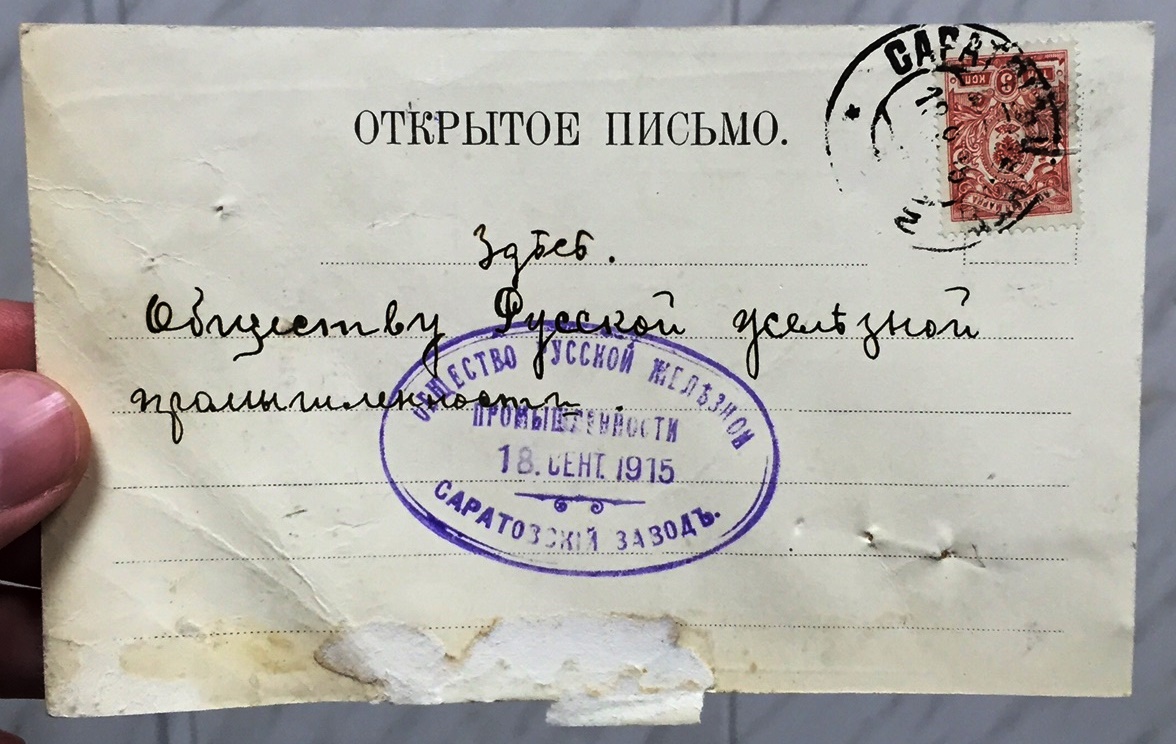 ОТКРЫТОЕ ПИСЬМО.
САРАТОВ
3 КОП
МАРКА
Здѣсь.
Обществу Русской желѣзной
промышленности.
ОБЩЕСТВО РУССКОЙ ЖЕЛѢЗНОЙ
ПРОМЫШЛЕННОСТИ
18. СЕНТ. 1915
САРАТОВСКІЙ ЗАВОДЪ.